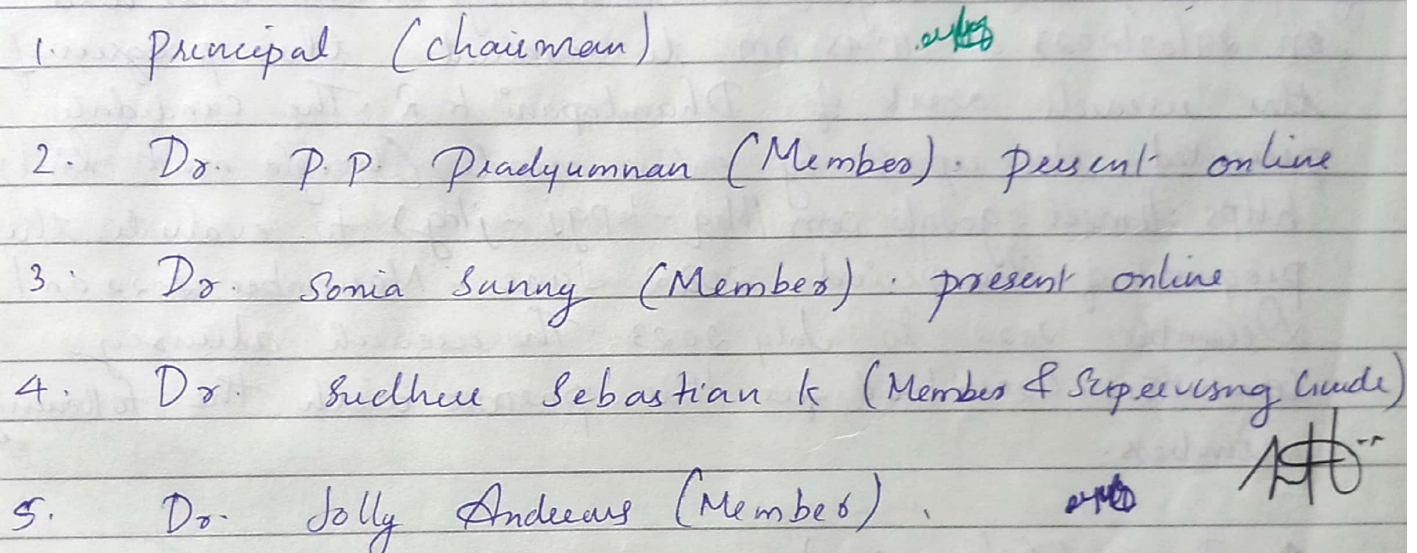 1. Principal (Chairman)
2. Dr. P.P. Pradyumnan (Member). present online
3. Dr. Sonia Sunny (Member). present online
4. Dr. Sudheer Sebastian K (Member & Supervising Guide)
5. Dr. Jolly Andrews (Member).